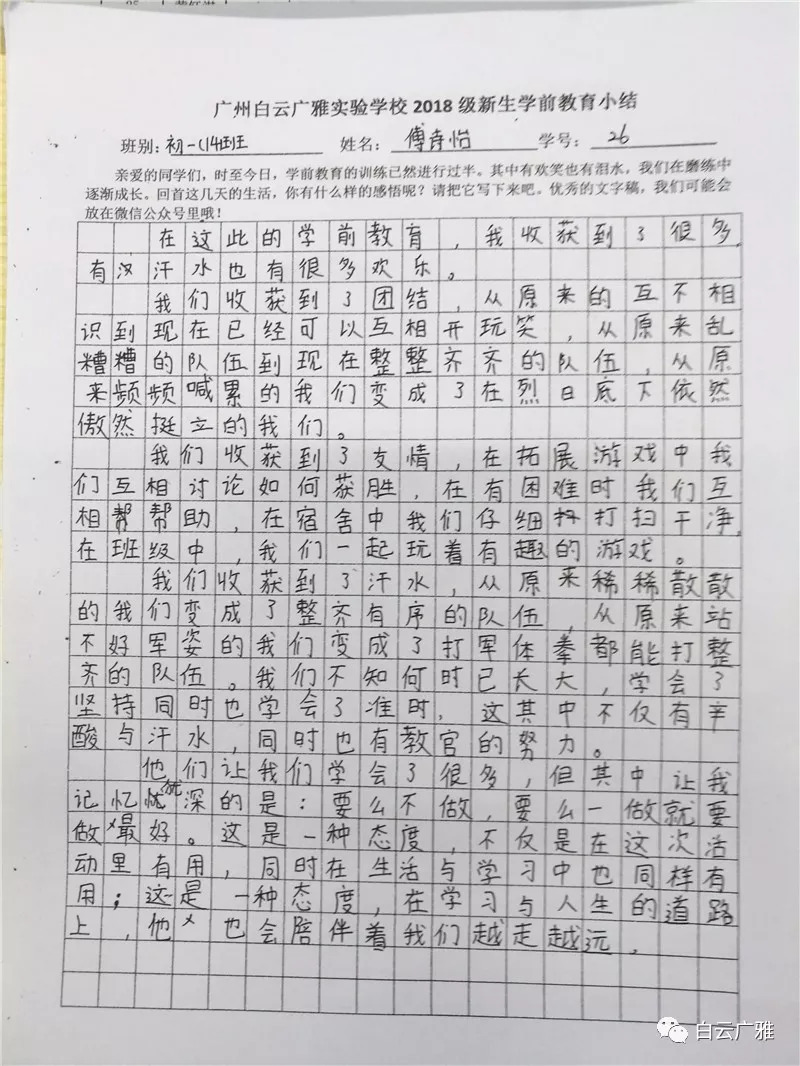 广州白云广雅实验学校2018级新生学前教育小结
班别：初一(14)班 姓名：傅诗怡 学号：26
亲爱的同学们，时至今日，学前教育的训练已然进行过半。其中有欢笑也有泪水，我们在磨练中
逐渐成长。回首这几天的生活，你有什么样的感悟呢？请把它写下来吧。优秀的文字稿，我们可能会
放在微信公众号里哦！
在这此的学前教育，我收获到了很多，
有汉汗水也有很多欢乐。
我们收获到了团结，从原来的互不相
识到现在已经可以互相开玩笑，从原来乱
糟糟的队伍到现在整整齐齐的队伍，从原
来频频喊累的我们变成了在烈日底下依然
傲然挺立的我们。
我们收获到了友情，在拓展游戏中我
们互相讨论如何获胜，在有困难时我们互
相帮帮助，在宿舍中我们仔细打扫干净，
在班级中，我们一起玩着有趣的游戏。
我们收获到了汗水，从原来稀稀散散
的我们变成了整齐有序的队伍，从原来站
不好军姿的我们变成了打军体拳都能打整
齐的队伍。我们不知何时已长大，学会了
坚持同时也学会了准时，这其中不仅有辛
酸与汗水，同时也有教官的努力。
他们让我们学会了很多，但其中让我
记忆犹深的是：要么不做，要么一做就要
做最好。这是一种态度，不仅是在这次活
动里有用，同时在生活与学习中也同样有
用；这是一种态度，在学习与人生的道路
上，他也会陪伴着我们越走越远。
白云广雅